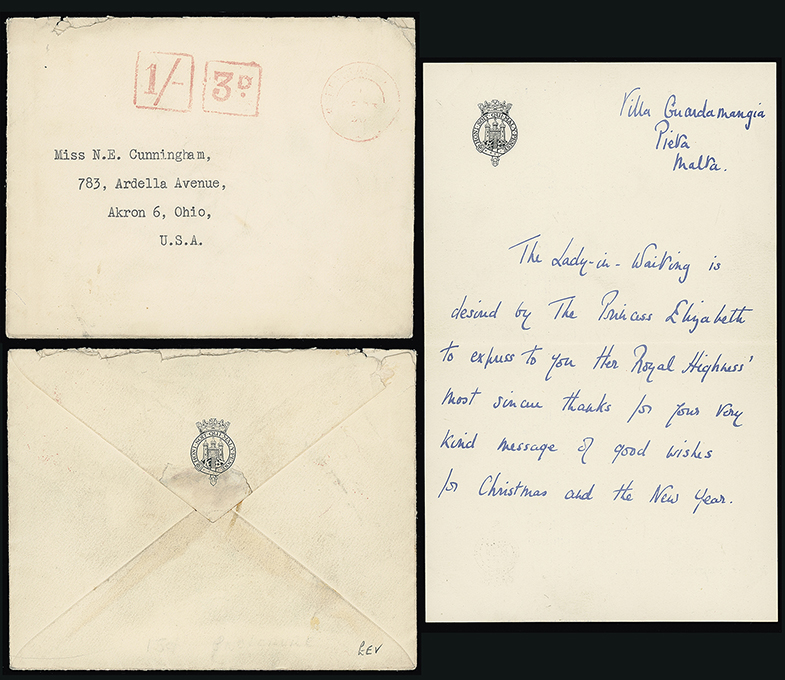 1/-
3D.
Miss N.E. Cunningham,
783, Ardella Avenue,
Akron 6, Ohio,
U.S.A.
REV
Villa Guardamangia
Pieta
Malta.
The Lady-in-Waiting is
desired by The Princess Elizabeth
to express to you Her Royal Highness'
most sincere thanks for your very
kind message of good wishes
for Christmas and the New Year.